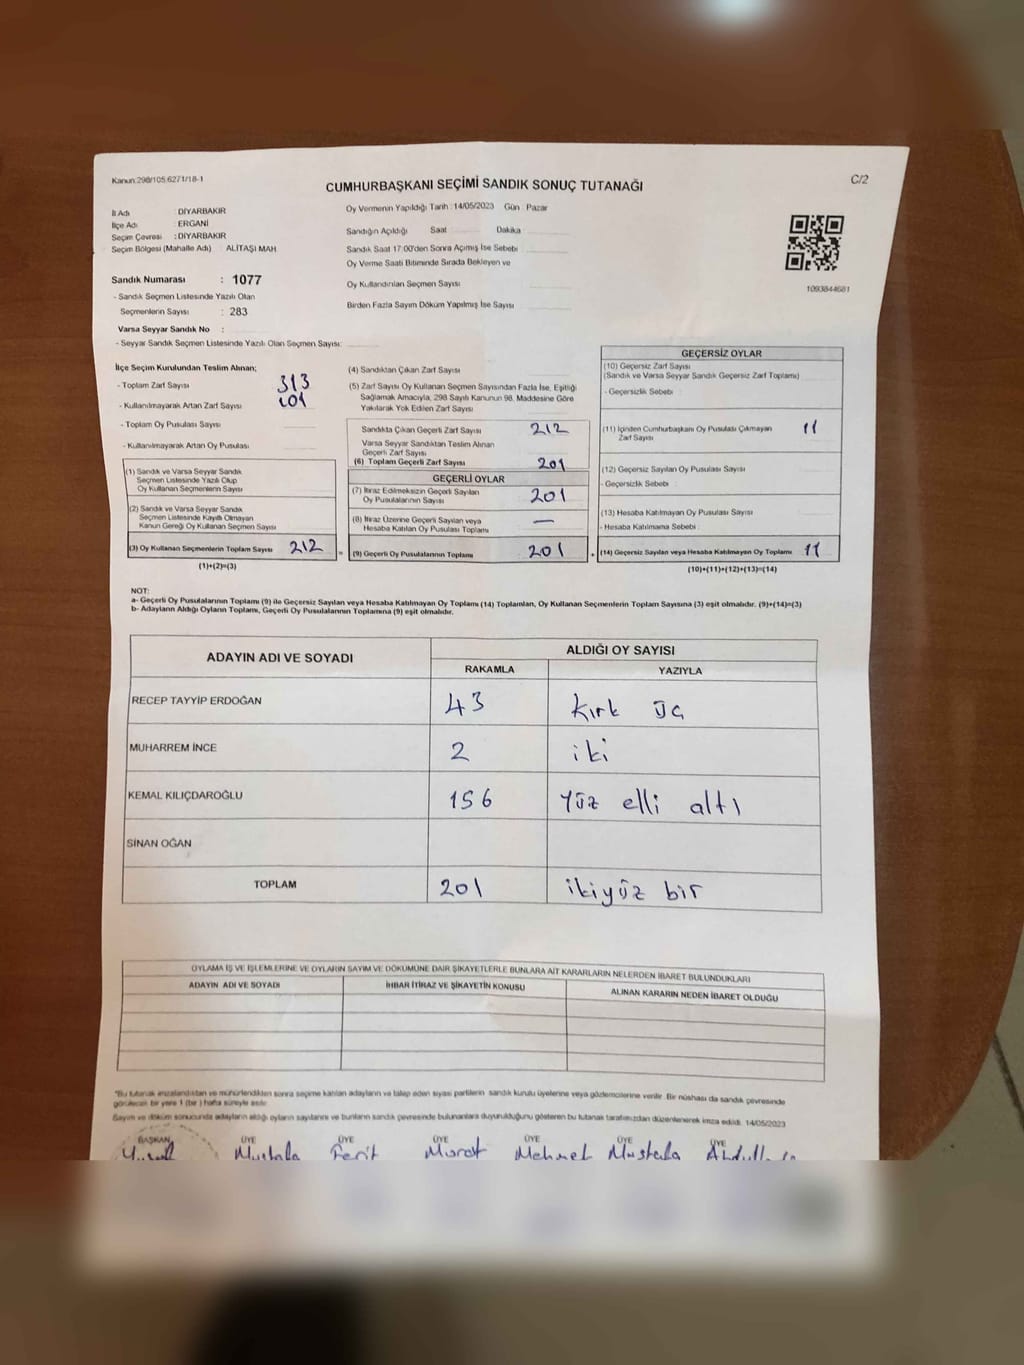 Kanun:298/105.6271/18-1
CUMHURBAŞKANI SEÇİMİ SANDIK SONUÇ TUTANAĞI
C/2
İl Adı : DİYARBAKIR
İlçe Adı : ERGANİ
Seçim Çevresi : DİYARBAKIR
Seçim Bölgesi (Mahalle Adı) : ALİTAŞI MAH.
Sandık Numarası : 1077
- Sandık Seçmen Listesinde Yazılı Olan
Seçmenlerin Sayısı : 283
Varsa Seyyar Sandık No :
- Seyyar Sandık Seçmen Listesinde Yazılı Olan Seçmen Sayısı:
Oy Vermenin Yapıldığı Tarih : 14/05/2023 Gün : Pazar
Sandığın Açıldığı Saat Dakika
Sandık Saat 17:00'den Sonra Açımış İse Sebebi
Oy Verme Saati Bitiminde Sırada Bekleyen ve
Oy Kullandırılan Seçmen Sayısı
Birden Fazla Sayım Döküm Yapılmış İse Sayısı
1093844681
İlçe Seçim Kurulundan Teslim Alınan;
- Toplam Zarf Sayısı 313
- Kullanılmayarak Artan Zarf Sayısı 101
- Toplam Oy Pusulası Sayısı
- Kullanılmayarak Artan Oy Pusulası
(1) Sandık ve Varsa Seyyar Sandık
Seçmen Listesinde Yazılı Olup
Oy Kullanan Seçmenlerin Sayısı
(2) Sandık ve Varsa Seyyar Sandık
Seçmen Listesinde Kayıtlı Olmayan
Kanun Gereği Oy Kullanan Seçmen Sayısı
(3) Oy Kullanan Seçmenlerin Toplam Sayısı 212
(1)+(2)=(3)
(4) Sandıktan Çıkan Zarf Sayısı
(5) Zarf Sayısı Oy Kullanan Seçmen Sayısından Fazla İse, Eşitliği
Sağlamak Amacıyla, 298 Sayılı Kanunun 98. Maddesine Göre
Yakılarak Yok Edilen Zarf Sayısı
Sandıkta Çıkan Geçerli Zarf Sayısı 212
Varsa Seyyar Sandıktan Teslim Alınan
Geçerli Zarf Sayısı
(6) Toplam Geçerli Zarf Sayısı 201
GEÇERLİ OYLAR
(7) İtiraz Edilmeksizin Geçerli Sayılan
Oy Pusulalarının Sayısı 201
(8) İtiraz Üzerine Geçerli Sayılan veya
Hesaba Katılan Oy Pusulası Toplamı —
= (9) Geçerli Oy Pusulalarının Toplamı 201
GEÇERSİZ OYLAR
(10) Geçersiz Zarf Sayısı
(Sandık ve Varsa Seyyar Sandık Geçersiz Zarf Toplamı)
- Geçersizlik Sebebi :
(11) İçinden Cumhurbaşkanı Oy Pusulası Çıkmayan
Zarf Sayısı 11
(12) Geçersiz Sayılan Oy Pusulası Sayısı
- Geçersizlik Sebebi :
(13) Hesaba Katılmayan Oy Pusulası Sayısı
- Hesaba Katılmama Sebebi :
+ (14) Geçersiz Sayılan veya Hesaba Katılmayan Oy Toplamı 11
(10)+(11)+(12)+(13)=(14)
NOT:
a- Geçerli Oy Pusulalarının Toplamı (9) ile Geçersiz Sayılan veya Hesaba Katılmayan Oy Toplamı (14) Toplamları, Oy Kullanan Seçmenlerin Toplam Sayısına (3) eşit olmalıdır. (9)+(14)=(3)
b- Adayların Aldığı Oyların Toplamı, Geçerli Oy Pusulalarının Toplamına (9) eşit olmalıdır.
ADAYIN ADI VE SOYADI
ALDIĞI OY SAYISI
RAKAMLA YAZIYLA
RECEP TAYYİP ERDOĞAN 43 kırk üç
MUHARREM İNCE 2 iki
KEMAL KILIÇDAROĞLU 156 Yüz elli altı
SİNAN OĞAN
TOPLAM 201 ikiyüz bir
OYLAMA İŞ VE İŞLEMLERİNE VE OYLARIN SAYIM VE DÖKÜMÜNE DAİR ŞİKAYETLERLE BUNLARA AİT KARARLARIN NELERDEN İBARET BULUNDUKLARI
ADAYIN ADI VE SOYADI
İHBAR İTİRAZ VE ŞİKAYETİN KONUSU
ALINAN KARARIN NEDEN İBARET OLDUĞU
*Bu tutanak imzalandıktan ve mühürlendikten sonra seçime katılan adayların ve talep eden siyasi partilerin sandık kurulu üyelerine veya gözlemcilerine verilir. Bir nüshası da sandık çevresinde
görülecek bir yere 1 (bir) hafta süreyle asılır.
Sayım ve döküm sonucunda adayların aldığı oyların sayılarını ve bunların sandık çevresinde bulunanlara duyurulduğunu gösteren bu tutanak tarafımızdan düzenlenerek imza edildi. 14/05/2023
BAŞKAN ÜYE ÜYE ÜYE ÜYE ÜYE ÜYE
Mustafa Ferit Murat Mehmet Mustafa